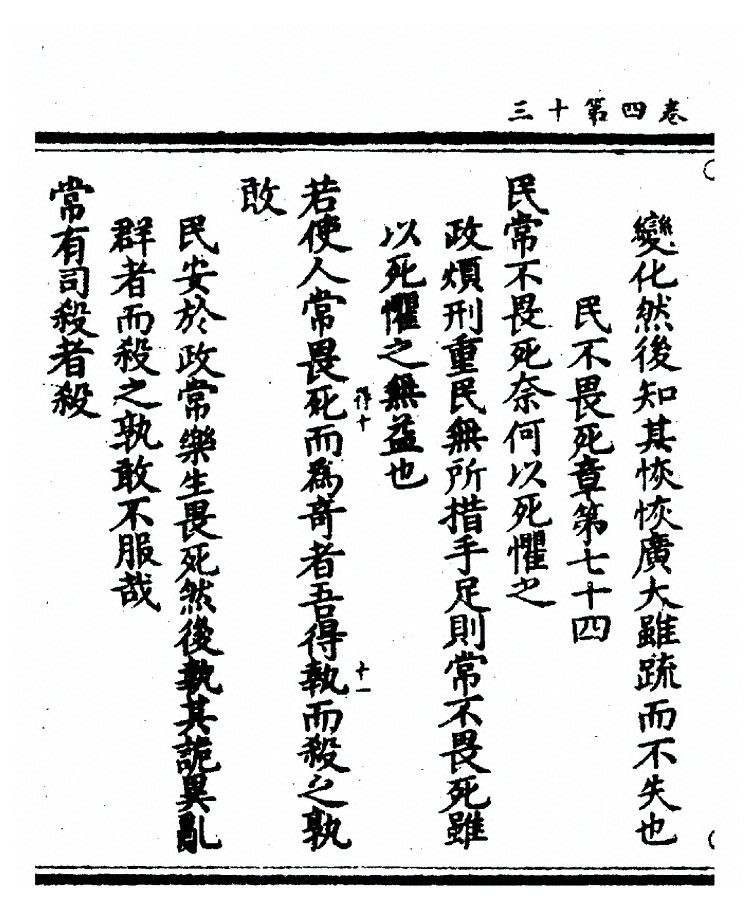 三十第四卷
變化然後知其恢恢廣大雖䟽而不失也
民不畏死章第七十四
民常不畏死奈何以死懼之
政煩刑重民無所措手足則常不畏死雖
以死懼之無益也
若使人常畏死而爲竒者吾得執而殺之孰
得十
十一
敢
民安於政常樂生畏死然後執其詭異亂
群者而殺之孰敢不服哉
常有司殺者殺